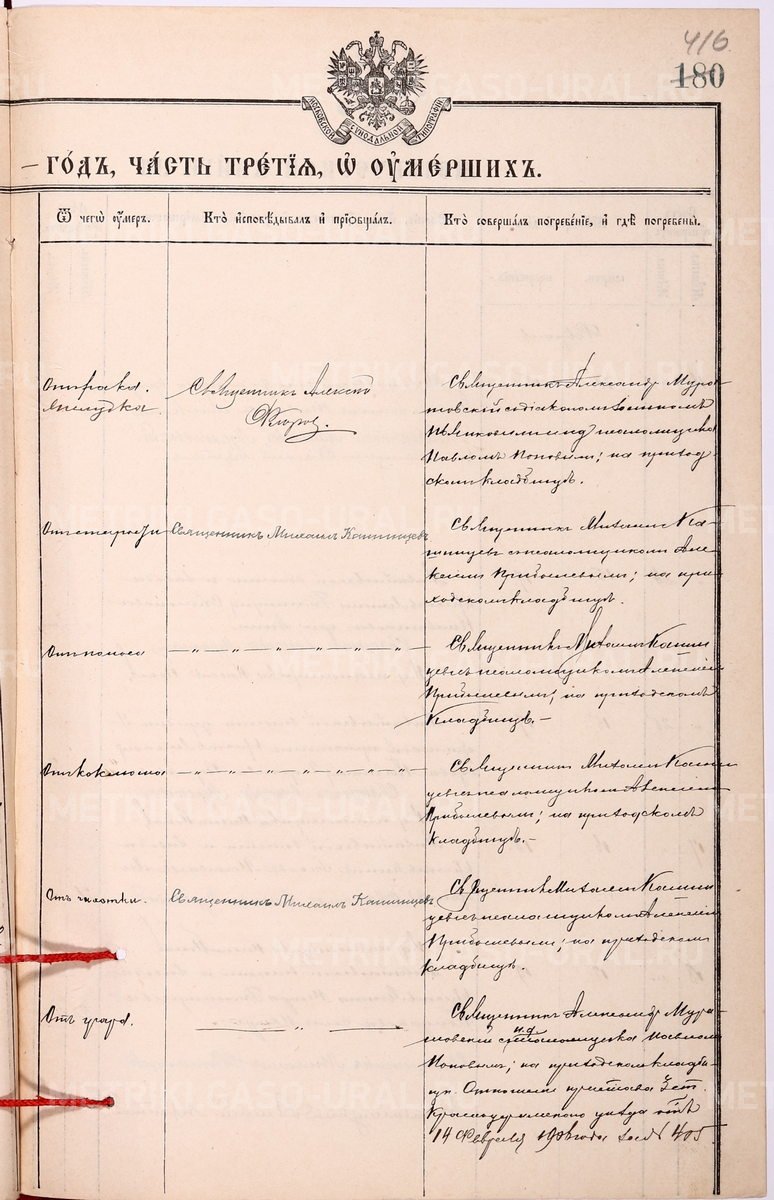 416
180
МОСКОВСКОЙ СѴНОДАЛЬНОЙ ТИПОГРАФІИ
— ГО́ДЪ, ЧА́СТЬ ТРЕ́ТІЯ, Ѡ҆ ОУ҆МЕ́РШИХЪ.
Ѿ чегѡ̀ оу҆́меръ.
Кто̀ и҆сповѣ́дывалъ и҆ прїѻбща́лъ.
Кто̀ соверша́лъ погребе́нїе, и҆ гдѣ̀ погребены̀.
Отъ рака
желудка
Священникъ Алексѣй
Священникъ Александръ Мура-
товскій съ діакономъ
и и.д. псаломщика
Павломъ Поповым; на приход-
скомъ кладбищѣ.
Отъ старости
Священникъ Михаилъ Кашинцевъ
Священникъ Михаилъ Ка-
шинцев с псаломщиком Але-
ксеем Прибылевым; на при-
ходском кладбищѣ.
От поноса
— „ — „ — „ — „ — „ — „ —
Священникъ Михаил Кашин
цев съ псаломщиком Алексеем
Прибылевым; на приходскомъ
кладбищѣ. —
От коклюша
— „ — „ — „ — „ — „ — „ —
Священник Михаил Кашин
цев с псаломщиком Алексеем
Прибылевым; на приходскомъ
кладбищѣ. —
Отъ чахотки.
Священникъ Михаилъ Кашинцевъ
Священник Михаил Кашин
цев с псаломщиком Алексеем
Прибылевым; на приходском
кладбищѣ.
Отъ угара.
— „ —
Священникъ Александр Мура-
товский с и.д. псаломщика Павлом
Поповымъ; на приходском кладби-
щѣ. Отношение пристава 3 ст.
Красноуфимского уѣзда отъ
14 Февраля 1908 года за № 405.
METRIKI.GASO-URAL.RU